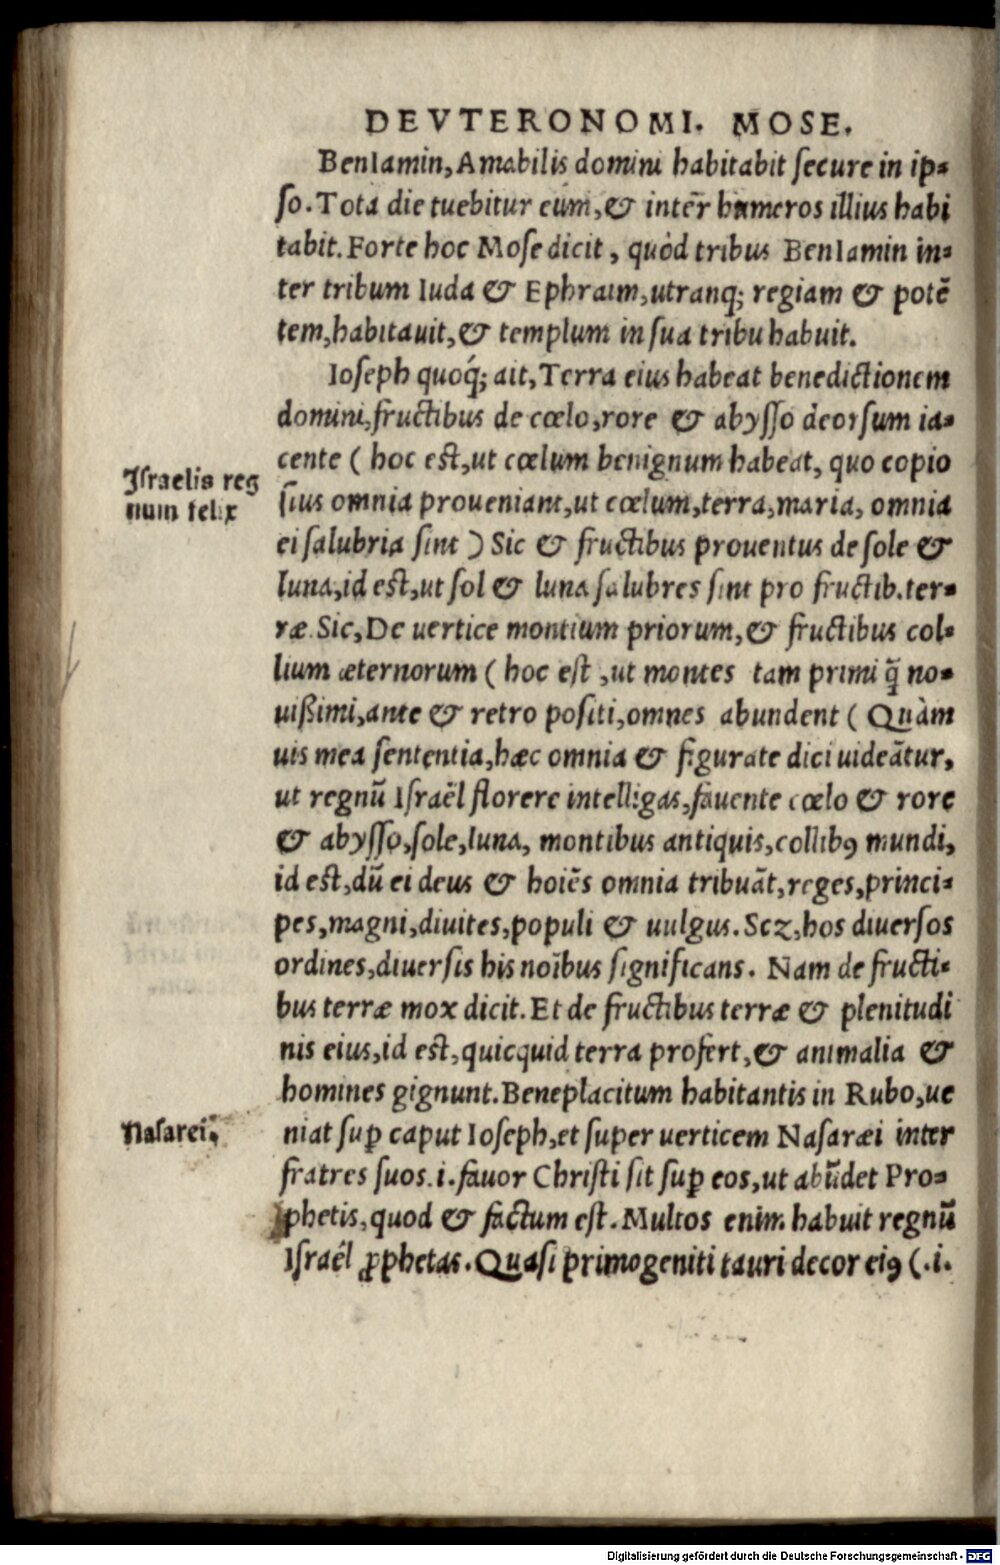 DEVTERONOMI. MOSE.
BenIamin, Amabilis domini habitabit secure in ip-
so. Tota die tuebitur eum, & inter̃ humeros illius habi
tabit. Forte hoc Mose dicit, quòd tribus BenIamin in-
ter tribum Iuda & Ephraim, utranq; regiam & potẽ
tem, habitauit, & templum in sua tribu habuit.
Ioseph quoq́; ait, Terra eius habeat benedictionem
domini, fructibus de cœlo, rore & abysso deorsum ia-
cente ( hoc est, ut cœlum benignum habeat, quo copio
Israelis reg
sius omnia proueniant, ut cœlum, terra, maria, omnia
num felix
ei salubria sint ) Sic & fructibus prouentus de sole &
luna, id est, ut sol & luna salubres sint pro fructib. ter-
ræ. Sic, De uertice montium priorum, & fructibus col-
lium æternorum ( hoc est, ut montes tam primi q̃ no-
uißimi, ante & retro positi, omnes abundent ( Quàm
uis mea sententia, hæc omnia & figurate dici uideãtur,
ut regnũ Israël florere intelligas, fauente cœlo & rore
& abysso, sole, luna, montibus antiquis, collibꝰ mundi,
id est, dũ ei deus & hoiẽs omnia tribuãt, reges, princi-
pes, magni, diuites, populi & uulgus. Scz, hos diuersos
ordines, diuersis his noĩbus significans. Nam de fructi-
bus terræ mox dicit. Et de fructibus terræ & plenitudi
nis eius, id est, quicquid terra profert, & animalia &
homines gignunt. Beneplacitum habitantis in Rubo, ue
Nasarei.
niat suꝑ caput Ioseph, et super uerticem Nasaræi inter
fratres suos .i. fauor Christi sit suꝑ eos, ut abũdet Pro-
phetis, quod & factum est. Multos enim habuit regnũ
Israël ꝓphetas. Quasi primogeniti tauri decor eiꝰ (.i.
Digitalisierung gefördert durch die Deutsche Forschungsgemeinschaft - DFG